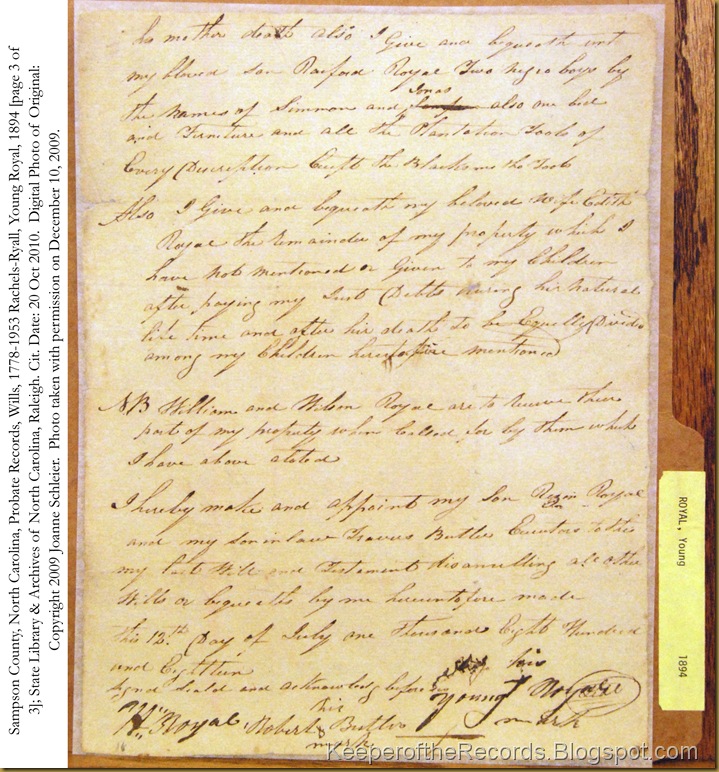 Sampson County, North Carolina, Probate Records, Wills, 1778-1953 Rachels-Ryall, Young Royal, 1894 [page 3 of
3]; State Library & Archives of North Carolina, Raleigh. Cit. Date: 20 Oct 2010. Digital Photo of Original:
Copyright 2009 Joanne Schleier. Photo taken with permission on December 10, 2009.
his mother death also I Give and bequeath unt
my beloved son Raiford Royal Two negro boys by
Jonas
the names of Simmon and also one bed
and Furniture and all the Plantation Tools of
Every Discription Except the Blacksmiths Tools
Also I Give and bequeath my beloved Wife Edith
Royal the remainder of my property which I
have not mentioned or Given to my Children
after paying my Just Debts during her natural
life time and after her death to be Equelly Divide
among my Children heretofore mentioned
NB William and Wilson Royal are to receve there
part of my property when Called for by them which
I have above stated
I hereby make and appoint my Son Royal
and my son in law Travers Butler Executors to this
my last Will and Testament disannulling all other
Wills or bequeaths by me heretofore made
this 13th Day of July one Thousand Eight Hundred
and Eighteen
Signd Seald and acknowledg before his
Young Royal
H. Royal Robert his Butler
mark mark
ROYAL, Young 1894
KeeperoftheRecords.Blogspot.com